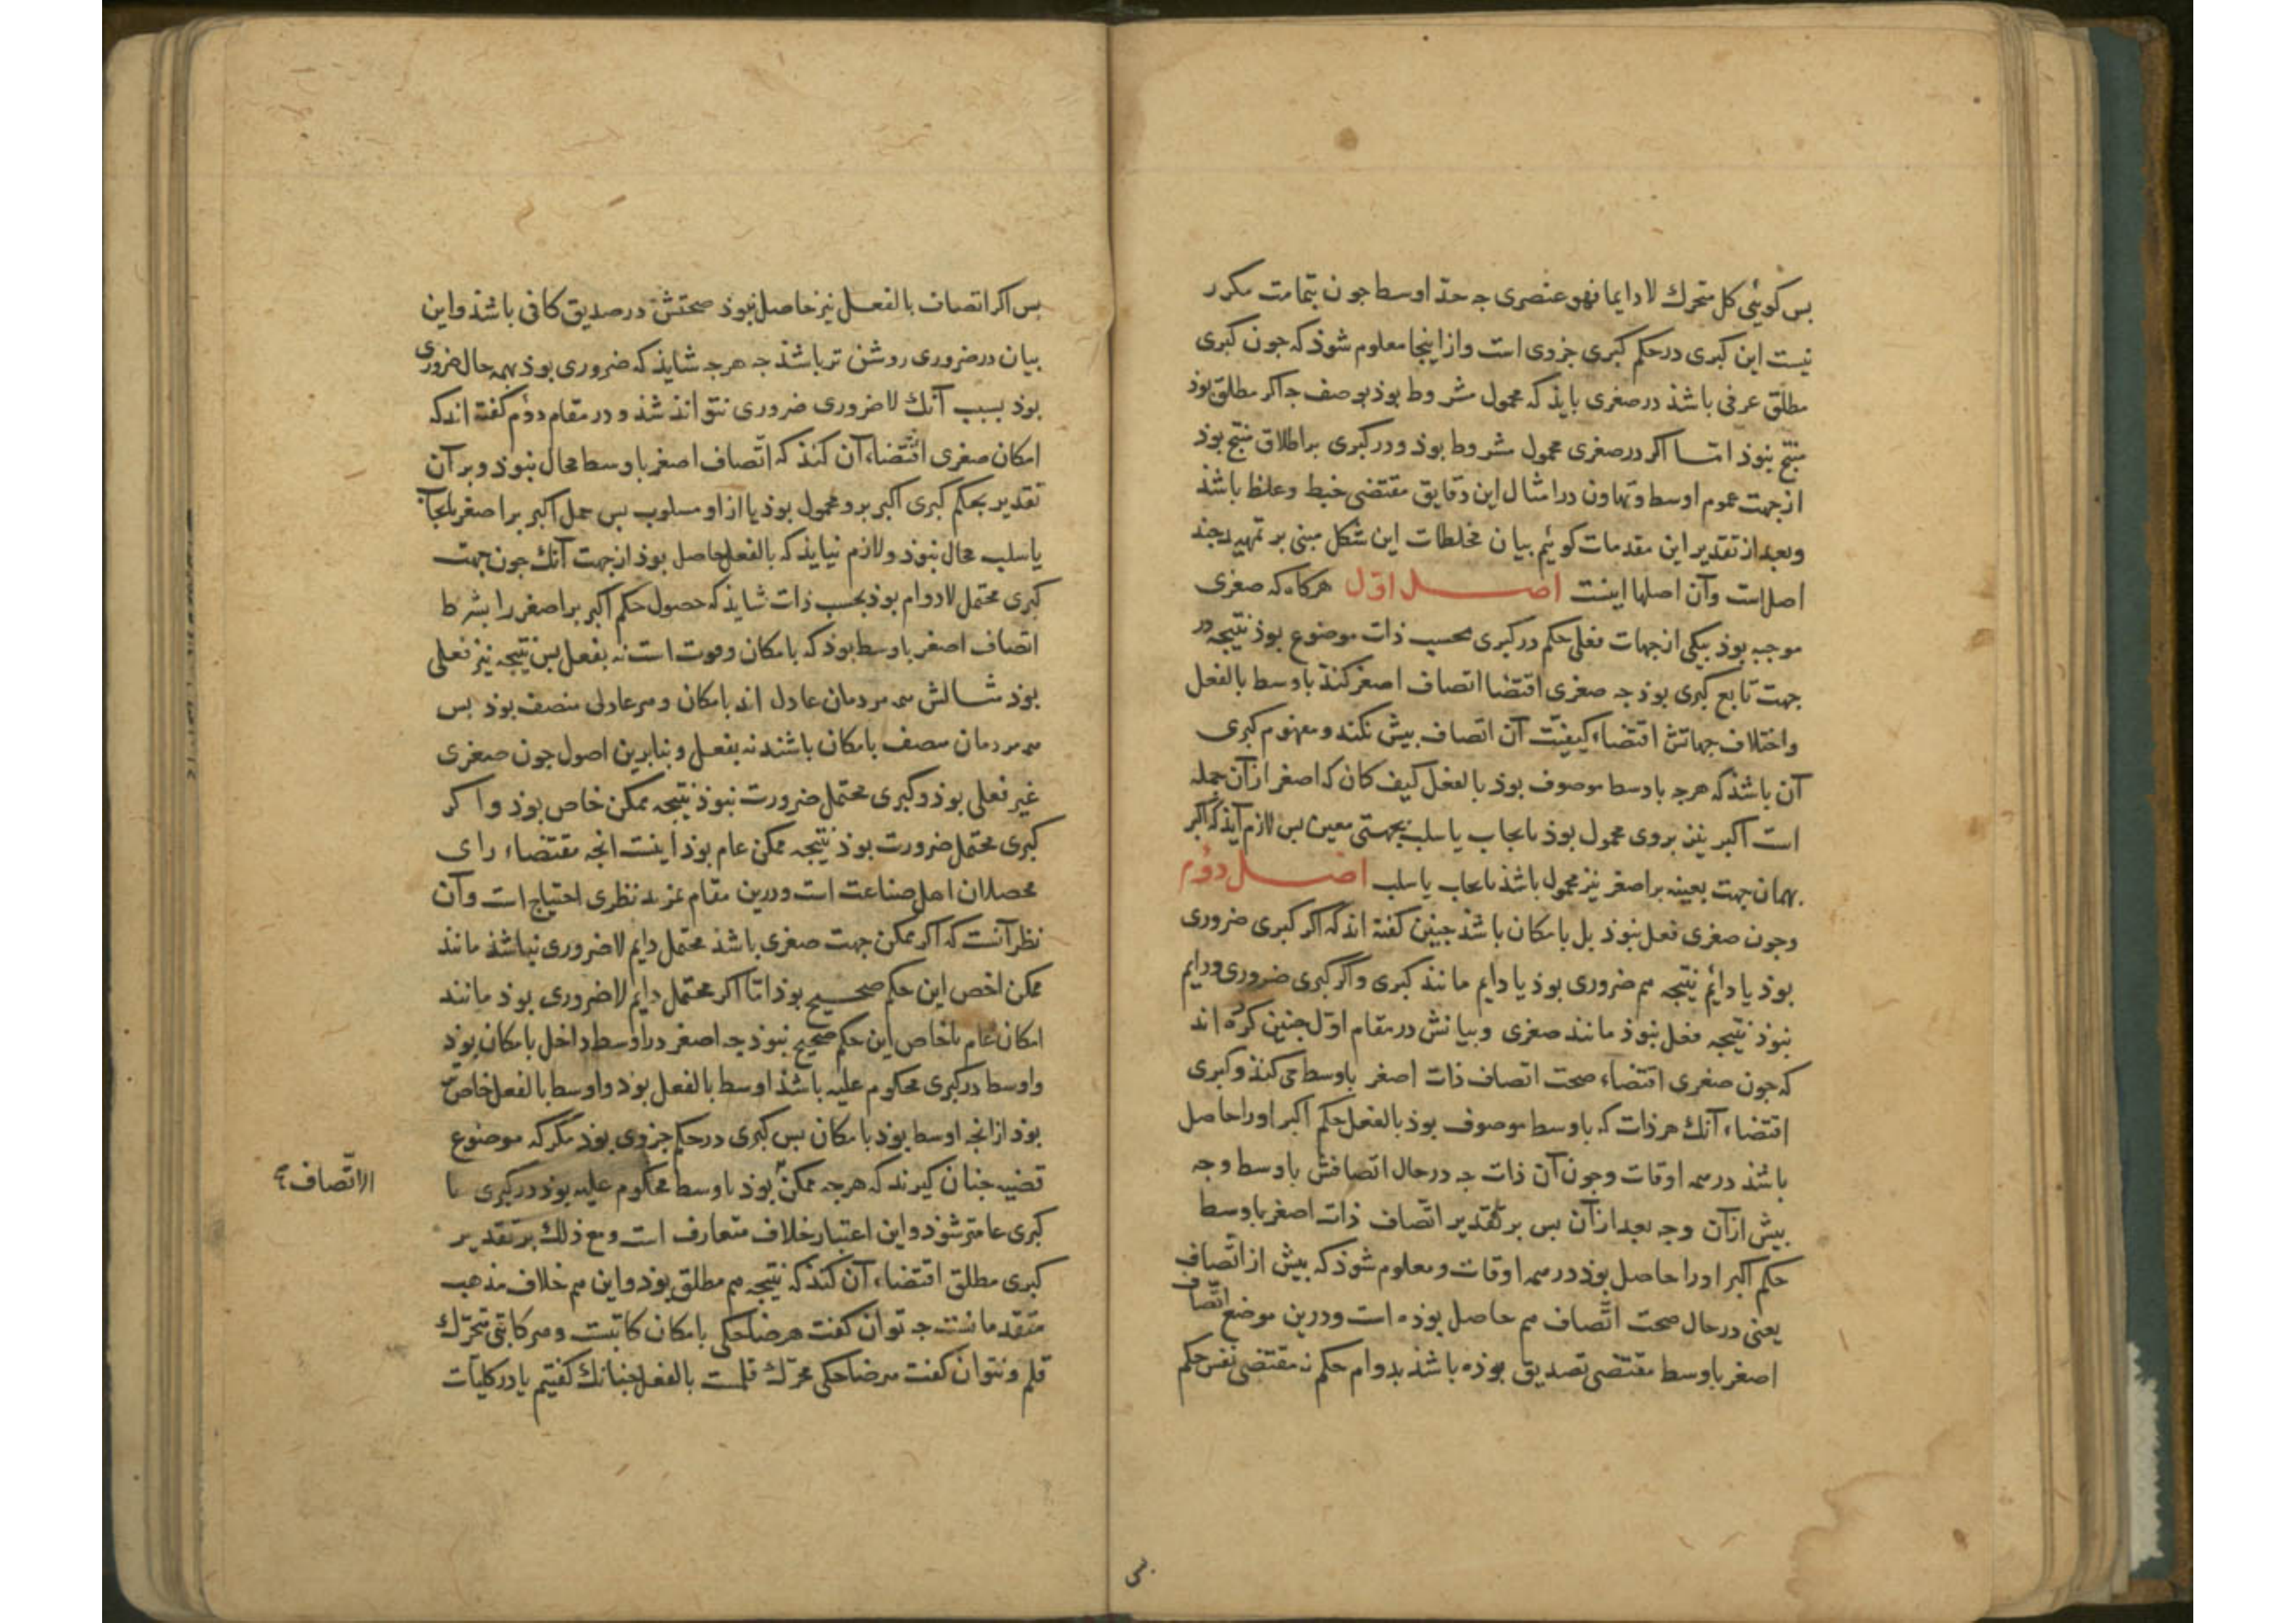 بس کوئیی کل متحرك لا دایما فهو عنصری جه حدّ اوسط جون بتمامت مکرر
نیست این کبری در حکم کبری جزوی است و از اینجا معلوم شوذ که جون کبری
مطلق عرفی باشذ در صغری بایذ که محمول مشروط بوذ بوصف جه اکر مطلق بوذ
منتج نبوذ امّا اکر در صغری محمول مشروط بوذ و در کبری بر اطلاق منتج بوذ
از جهت عموم اوسط و تهاون در امثال این دقایق مقتضی خبط و غلط باشذ
و بعد از تقدیر این مقدمات کوئیم بیان مختلطات این شکل مبنی بر تمهید جند
اصل است و آن اصلها اینست اصل اوّل هرکاه که صغری
موجبه بوذ بیکی از جهات فعلی حکم در کبری بحسب ذات موضوع بوذ نتیجه در
جهت تابع کبری بوذ جه صغری اقتضا اتصاف اصغر کنذ باوسط بالفعل
و اختلاف جهاتش اقتضاء کیفیّت آن اتصاف بیش نکند و مفهوم کبری
آن باشذ که هرجه باوسط موصوف بوذ بالفعل کیف کان که اصغر از آن جمله
است اکبر نیز بر وی محمول بوذ بایجاب یا سلب بجهتی معین بس لازم آیذ که اکبر
بهمان جهت بعینه بر اصغر نیز محمول باشذ بایجاب یا سلب اصل دوّم
و جون صغری فعلی نبوذ بل بامکان باشذ جنین کفته اند که اکر کبری ضروری
بوذ یا دائم نتیجه هم ضروری بوذ یا دایم مانند کبری و اکر کبری ضروری و دایم
نبوذ نتیجه فعلی نبوذ مانند صغری و بیانش در مقام اوّل جنین کرده اند
که جون صغری اقتضاء صحت اتصاف ذات اصغر باوسط می کنذ و کبری
اقتضاء آنك هر ذات که باوسط موصوف بوذ بالفعل حکم اکبر او را حاصل
باشذ در همه اوقات و جون آن ذات جه در حال اتصافش باوسط و جه
بیش از آن و جه بعد از آن بس بر تقدیر اتّصاف ذات اصغر باوسط
حکم اکبر او را حاصل بوذ در همه اوقات و معلوم شوذ که بیش از اتّصاف
یعنی در حال صحت اتّصاف هم حاصل بوذه است و درین موضع اتّصاف
اصغر باوسط مقتضی تصدیق بوذه باشذ بدوام حکم نه مقتضی نفس حکم
بس اکر اتصاف بالفعل نیز حاصل نبوذ صحتش در صدیق کافی باشذ و این
بیان در ضروری روشن تر باشذ جه هرجه شایذ که ضروری بوذ بهمه حال ضروری
بوذ بسبب آنك لا ضروری ضروری نتواند شذ و در مقام دوّم کفته اند که
امکان صغری اقتضاء آن کنذ که اتّصاف اصغر باوسط محال نبوذ و بر آن
تقدیر بحکم کبری اکبر برو محمول بوذ یا از او مسلوب بس حمل اکبر بر اصغر بایجاب
یا سلب محال نبوذ و لازم نیایذ که بالفعل حاصل بوذ از جهت آنك جون جهت
کبری محتمل لا دوام بوذ بحسب ذات شایذ که حصول حکم اکبر بر اصغر را بشرط
اتصاف اصغر باوسط بوذ که بامکان و قوت است نه بفعل بس نتیجه نیز فعلی
بوذ مثالش همه مردمان عادل اند بامکان و هر عادلی منصف بوذ بس
همه مردمان منصف بامکان باشند نه بفعل و بنابرین اصول جون صغری
غیر فعلی بوذ و کبری محتمل ضرورت نبوذ نتیجه ممکن خاص بوذ و اکر
کبری محتمل ضرورت بوذ نتیجه ممکن عام بوذ اینست انجه مقتضاء رای
محصلان اهل صناعت است و درین مقام بمزید نظری احتیاج است و آن
نظر آنست که اکر ممکن جهت صغری باشذ محتمل دایم لا ضروری نباشذ مانند
ممکن اخص این حکم صحیح بوذ امّا اکر محتمل دایم لا ضروری بوذ مانند
امکان عام یا خاص این حکم صحیح نبوذ جه اصغر در اوسط داخل بامکان بوذ
و اوسط در کبری محکوم علیه باشذ اوسط بالفعل بوذ و اوسط بالفعل خاص تر
بوذ از انجه اوسط بوذ بامکان بس کبری در حکم جزوی بوذ مکر که موضوع
قضیه جنان کیرند که هرجه ممکن بوذ باوسط محکوم علیه بوذ در کبری تا
الاتّصاف
کبری عامتر شوذ و این اعتبار خلاف متعارف است و مع ذلك بر تقدیر
کبری مطلق اقتضاء آن کنذ که نتیجه هم مطلق بوذ و این هم خلاف مذهب
متقدمانست جه توان کفت هر ضاحکی بامکان کاتبست و هر کاتبی متحرّك
قلم و نتوان کفت هر ضاحکی محرّك قلمست بالفعل جنانك کفتیم یا در کلیات